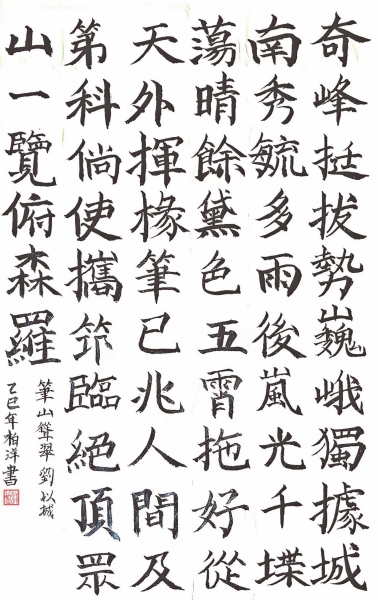 奇峰挺拔勢巍峨獨據城
南秀毓多雨後嵐光千堞
蕩晴餘黛色五霄拖好從
天外揮椽筆已兆人間及
第科倘使攜笻臨絕頂眾
山一覽俯森羅
筆山聳翠 劉以城
乙巳年柏洋書